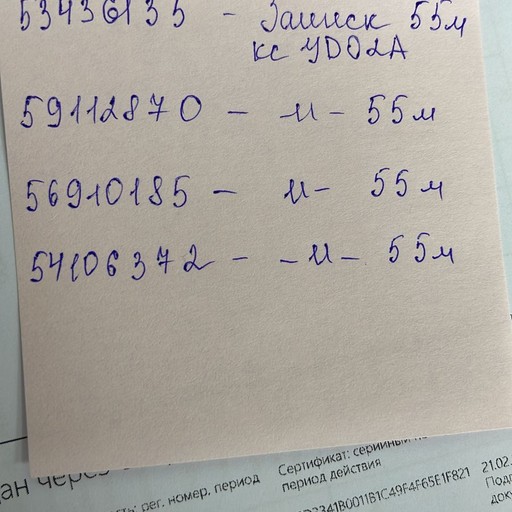 53436135 - Заинск 55м
кс УДО2А
59112870 - -и- 55м
56910185 - и- 55м
54106372 - -и- 55м
ан через
рег. номер, период
Сертификат: серийный
период действия
2341B0011B1C49F4F65E1F821
21.02.